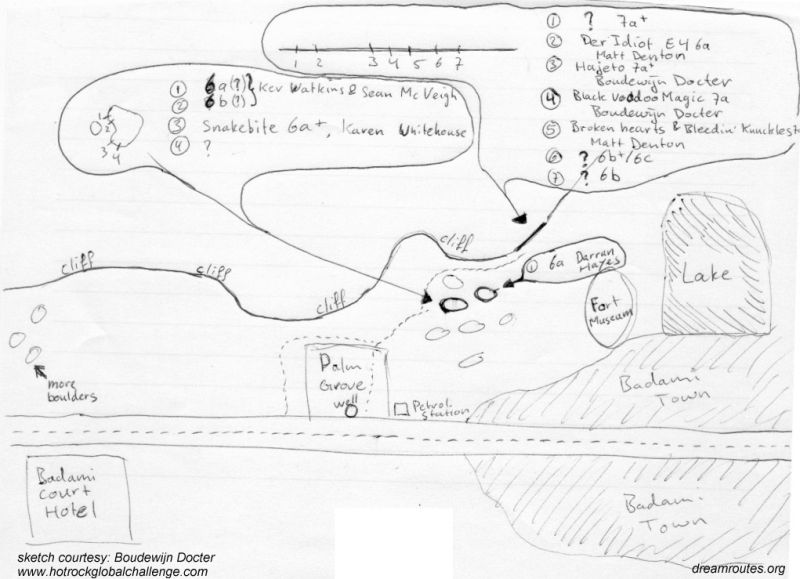 ① ? 7a+
② Der Idiot E4 6a
Matt Denton
③ Hajeto 7a+
Boudewijn Docter
④ Black Voodoo Magic 7a
Boudewijn Docter
⑤ Broken hearts & Bleedin' Knuckles
Matt Denton
⑥ ? 6b+/6c
⑦ ? 6b
1 2 3 4 5 6 7
① 6a(?) } Kev Watkins & Sean McVeigh
② 6b(?)
③ Snakebite 6a+, Karen Whitehouse
④ ?
1
2
3
4
cliff
cliff
cliff
cliff
① 6a Darran
Hayes
Lake
Fort
Museum
more
boulders
Palm
Grove
well
Petrol
Station
Badami
Town
Badami
Court
Hotel
Badami
Town
sketch courtesy: Boudewijn Docter
www.hotrockglobalchallenge.com
dreamroutes.org